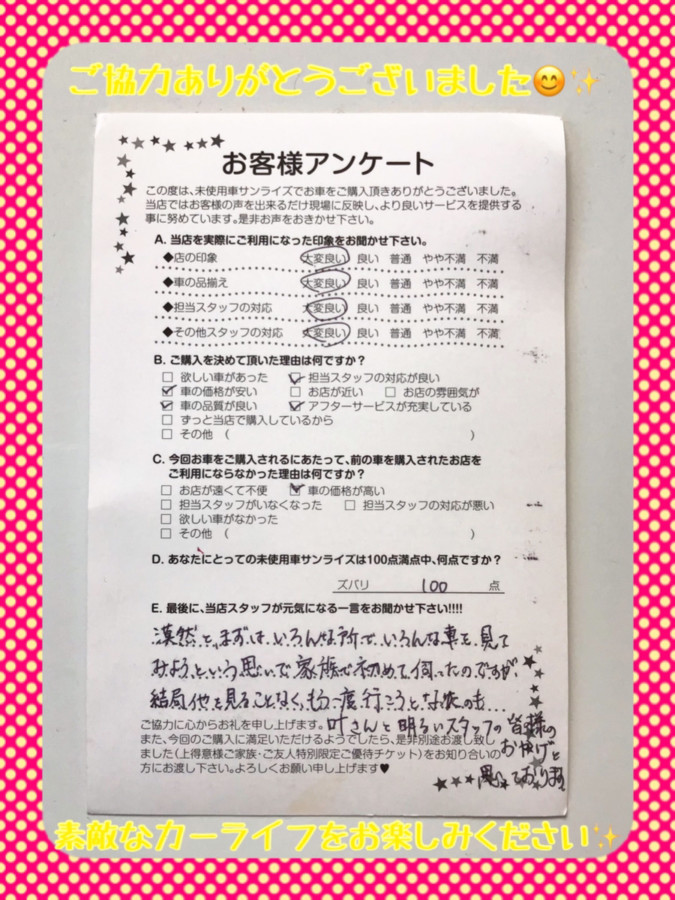 ご協力ありがとうございました😊✨
お客様アンケート
この度は、未使用車サンライズでお車をご購入頂きありがとうございました。
当店ではお客様の声を出来るだけ現場に反映し、より良いサービスを提供する
事に努めています。是非お声をおきかせ下さい。
A. 当店を実際にご利用になった印象をお聞かせ下さい。
◆店の印象 大変良い 良い 普通 やや不満 不満
◆車の品揃え 大変良い 良い 普通 やや不満 不満
◆担当スタッフの対応 大変良い 良い 普通 やや不満 不満
◆その他スタッフの対応 大変良い 良い 普通 やや不満 不満
B. ご購入を決めて頂いた理由は何ですか?
□ 欲しい車があった ☑ 担当スタッフの対応が良い
☑ 車の価格が安い □ お店が近い □ お店の雰囲気が
☑ 車の品質が良い ☑ アフターサービスが充実している
□ ずっと当店で購入しているから
□ その他 ( )
C. 今回お車をご購入されるにあたって、前の車を購入されたお店を
ご利用にならなかった理由は何ですか?
□ お店が遠くて不便 ☑ 車の価格が高い
□ 担当スタッフがいなくなった □ 担当スタッフの対応が悪い
□ 欲しい車がなかった
□ その他 ( )
D. あなたにとっての未使用車サンライズは100点満点中、何点ですか?
ズバリ 100 点
E. 最後に、当店スタッフが元気になる一言をお聞かせ下さい!!!!
漠然と、まずは、いろんな所で、いろんな車を、見て
みよう、という思いで家族で初めて伺ったのですが、
結局他を見ることなく、もう一度行こうとなったのも…
叶さんと明るいスタッフの皆様の
おかげと
思っております
ご協力に心からお礼を申し上げます。
また、今回のご購入に満足いただけるようでしたら、是非別途お渡し致し
ました(上得意様ご家族・ご友人特別限定ご優待チケット)をお知り合いの
方にお渡し下さい。よろしくお願い申し上げます♥
素敵なカーライフをお楽しみください✨